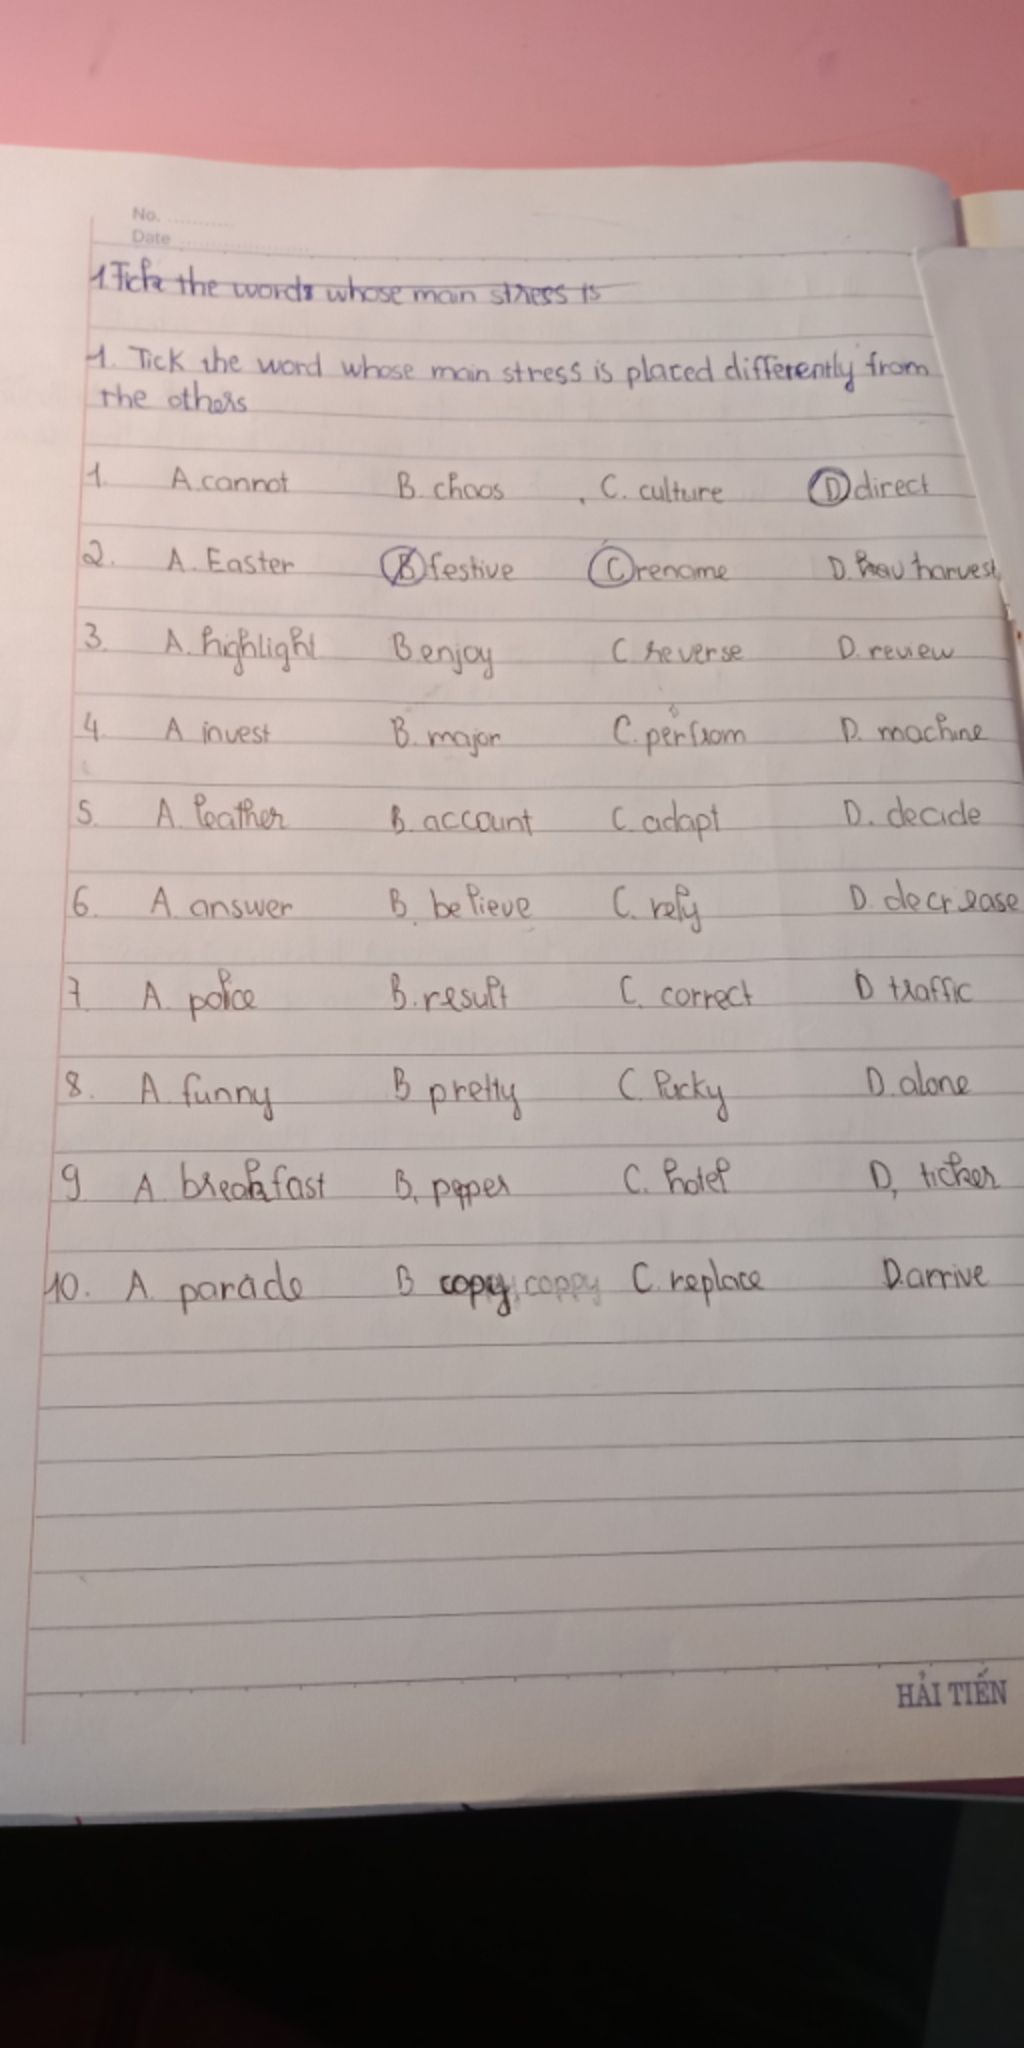 No. ............
Date ......................
1. Tick the words whose main stress is
1. Tick the word whose main stress is placed differently from
the others
1. A. cannot B. chaos C. culture D direct
2. A. Easter B festive C rename D. harvest
3. A. highlight B enjoy C reverse D. review
4. A invest B. major C. perfrom D. machine
5. A. leather B. account C. adapt D. decide
6. A answer B. believe C. rely D. decrease
7. A. police B. result C. correct D traffic
8. A. funny B pretty C. lucky D. alone
9 A breakfast B. C. hotel D,
10. A. parade B copy coppy C. replace D. arrive
HẢI TIẾN